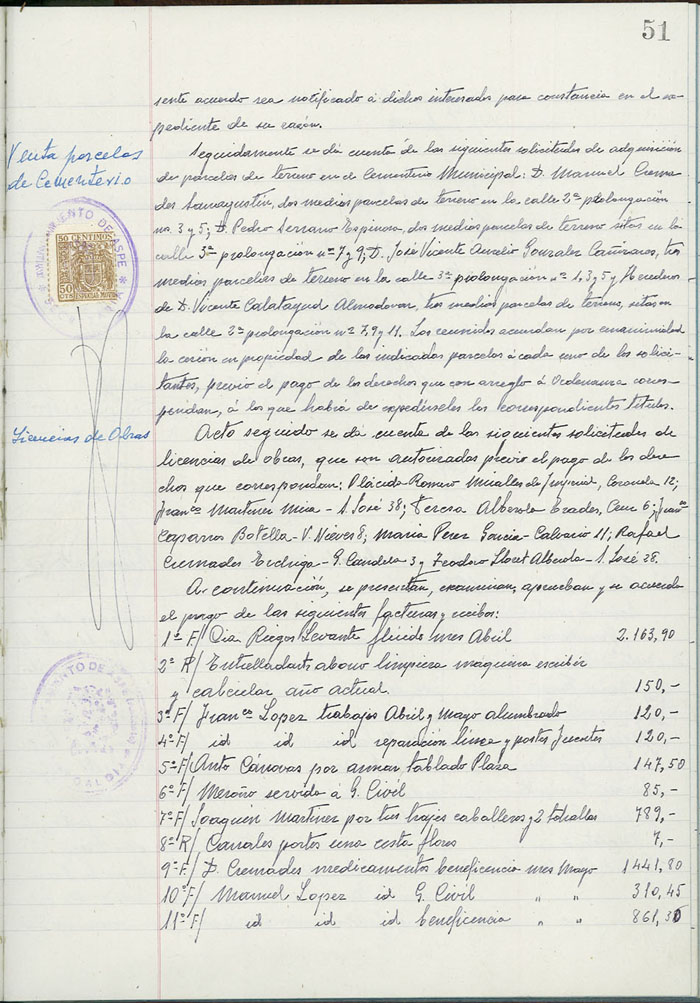 51
sente acuerdo sea notificado á dichos interesados para constancia en el ex-
pediente de su razón.
Venta parcelas
de Cementerio
Seguidamente se dá cuenta de las siguientes solicitudes de adquisición
de parcelas de terreno en el Cementerio Municipal: D. Manuel Crema
des dos medias parcelas de terreno en la calle 2ª prolongación
nos. 3 y 5; D. Pedro Serrano Espinosa, dos medias parcelas de terreno sitas en la
calle 3ª prolongación nº 7 y 9; D. José Vicente Aurelio Gonzalez Cañizares, tres
medias parcelas de terreno en la calle 3ª prolongación nº 1, 3 y 5 y Herederos
de D. Vicente Calatayud Almodovar, tres medias parcelas de terreno, sitas en
la calle 2ª prolongación nº 7, 9 y 11. Los reunidos acuerdan por unanimidad
la cesión en propiedad de las indicadas parcelas á cada uno de los solici-
tantes, previo el pago de los derechos que con arreglo á Ordenanza corres-
pondan, á los que habrá de expedírseles los correspondientes títulos.
AYUNTAMIENTO DE ASPE
50 CENTIMOS
50 CTS
ESPECIAL MOVIL
Licencias de Obras
Acto seguido se dá cuenta de las siguientes solicitudes de
licencias de obras, que son autorizadas previo el pago de los dere-
chos que correspondan: Plácida Romero Miralles de Imperial, Coronela 12;
Franco Martinez Mira - S. José 38; Teresa Alberola 6; Franco
Caparros Botella - V. Nieves 8; Maria Perez Garcia - Calvario 11; Rafael
Cremades - G. Candela 3 y Teodoro Llocet Alberola - S. José 28.
A continuación, se presentan, examinan, aprueban y se acuerda
el pago de las siguientes facturas y recibos:
1ª F/ Cia Riegos Levante fluido mes Abril 2.163,90
2ª R/ abono limpieza maquina escribir
y calcular año actual 150,-
3ª F/ Franco Lopez trabajos Abril y Mayo alumbrado 120,-
4ª F/ id id id reparacion linea y postes Fuentes 120,-
5ª F/ Anto Cánovas por armar tablado Plaza 147,50
6ª F/ servida á G. Civil 85,-
7ª F/ Joaquin Martinez por tres trajes caballeros y 2 toballas 789,-
8ª R/ Canales portes una cesta flores 7,-
9ª F/ D. Cremades medicamentos beneficencia mes Mayo 1441,80
10ª F/ Manuel Lopez id G. Civil " " 310,45
11ª F/ id id id beneficencia " " 861,30